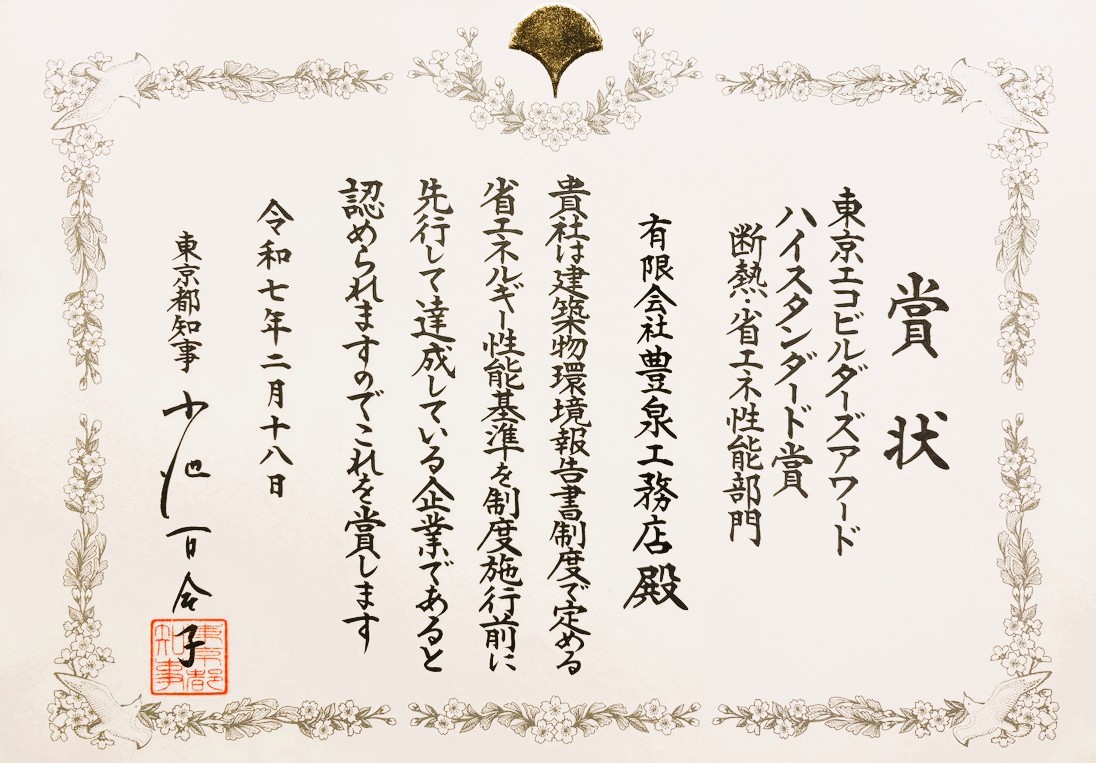 賞状
東京エコビルダーズアワード
ハイスタンダード賞
断熱・省エネ性能部門
有限会社豊泉工務店殿
貴社は建築物環境報告書制度で定める
省エネルギー性能基準を制度施行前に
先行して達成している企業であると
認められますのでこれを賞します
令和七年二月十八日
東京都知事 小池百合子
東京都知事